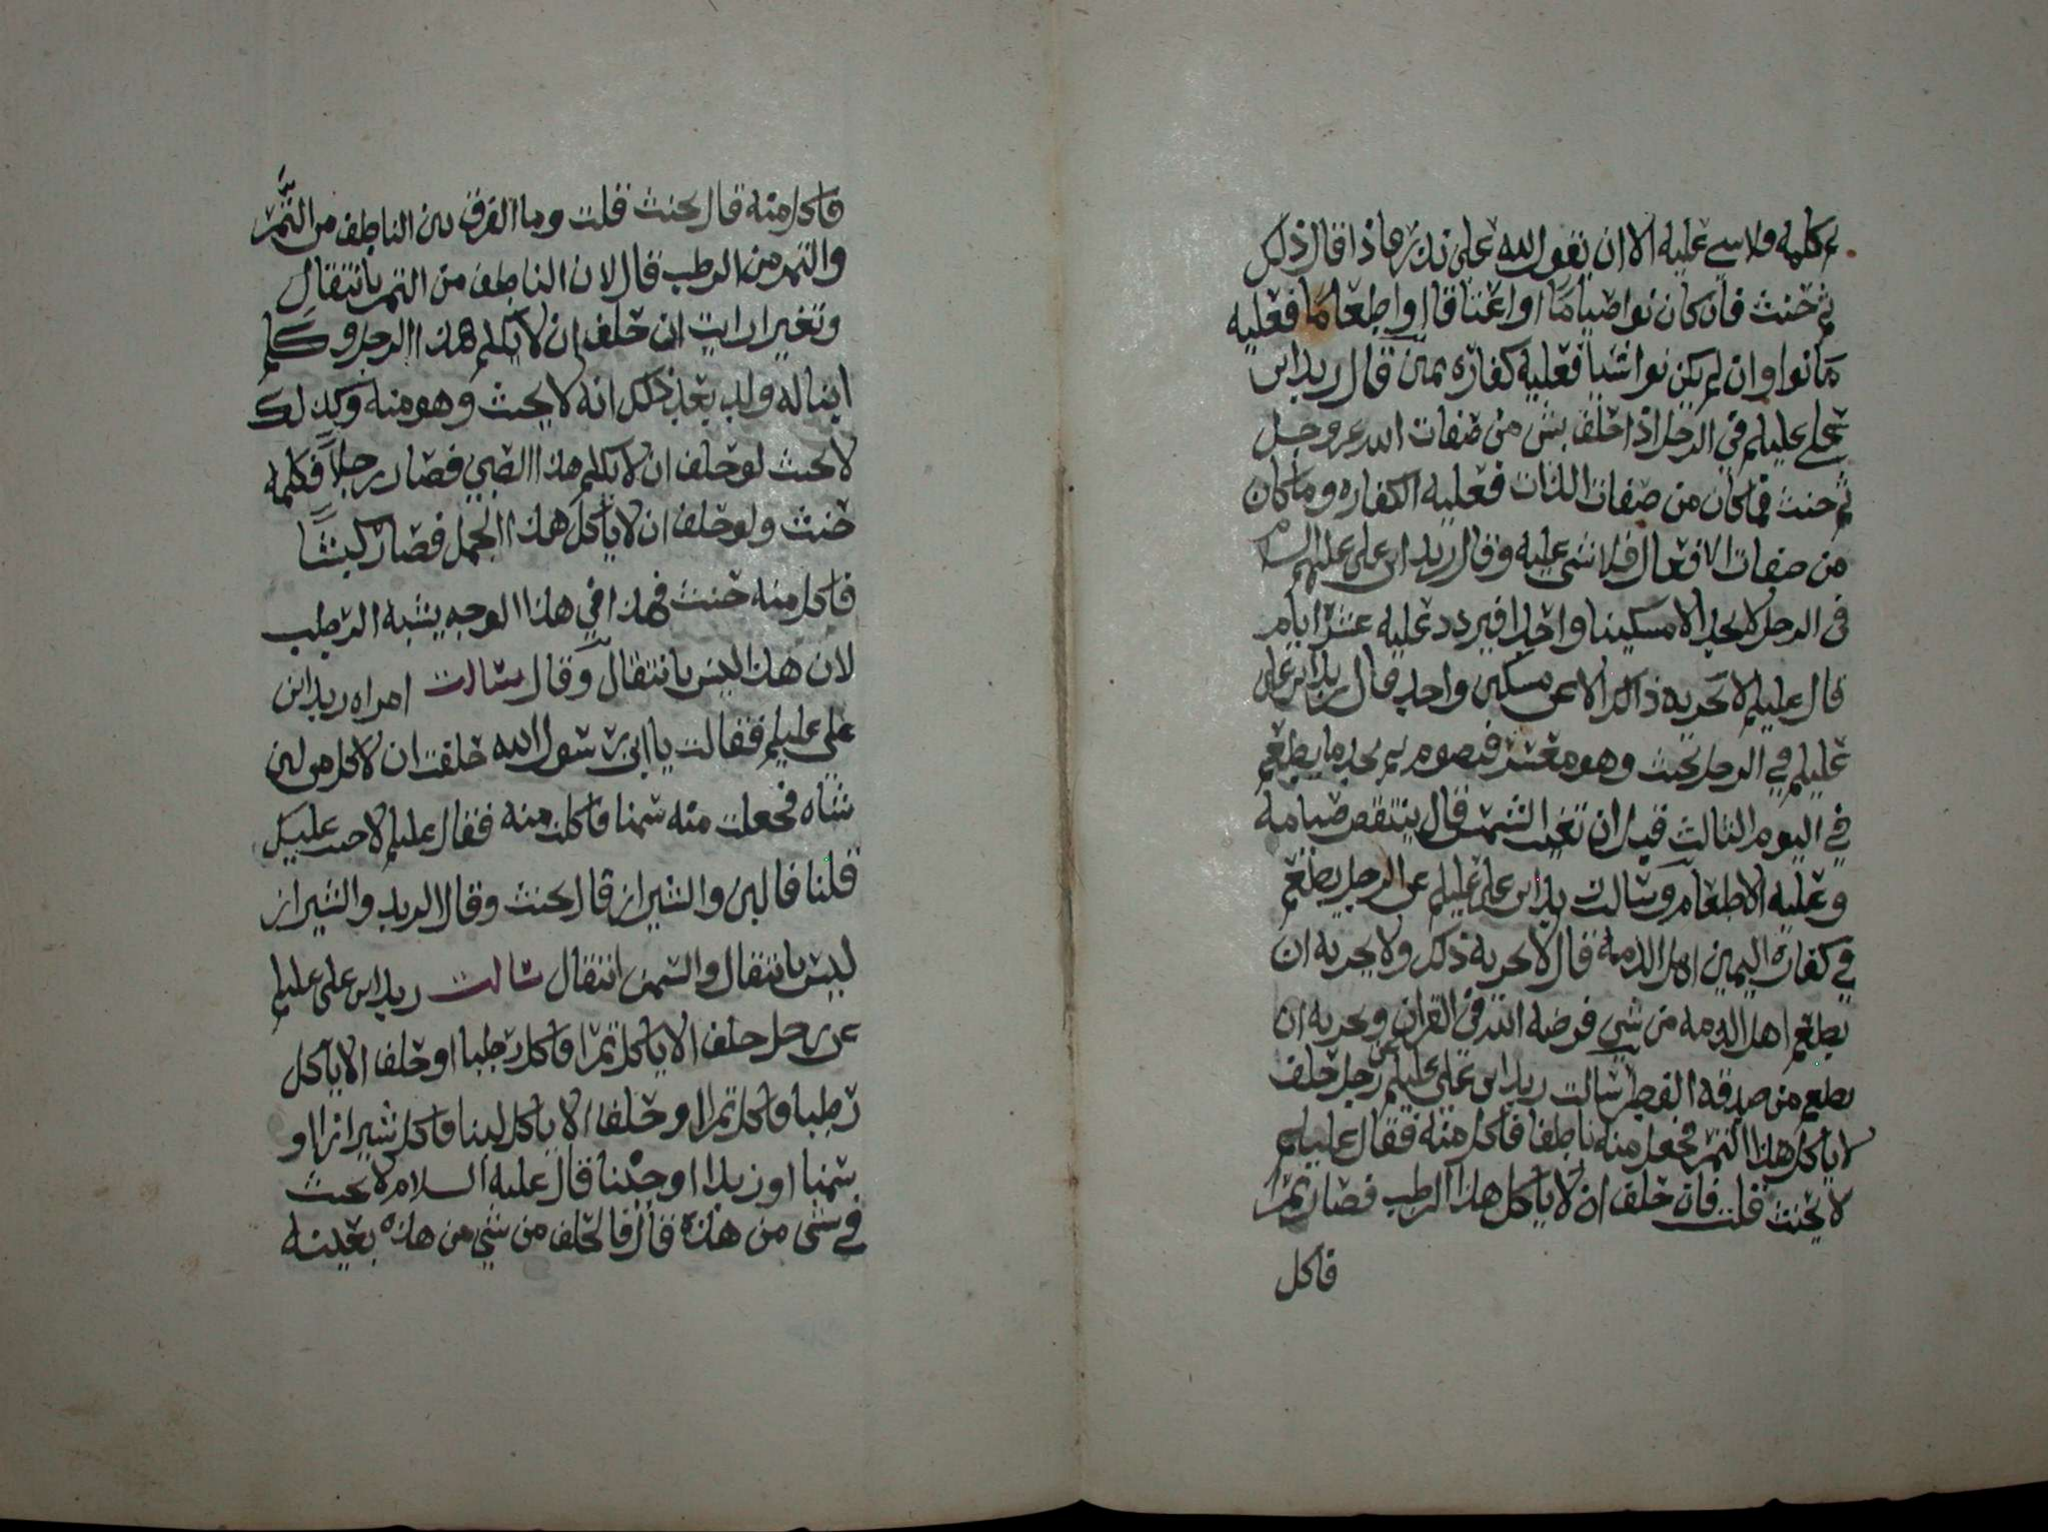 ثم كلمه فلا شي عليه الا ان يقول لله علي نذر فاذا قال ذلك
ثم حنث فان كان نوا صياما او اعتاقا او اطعاما فعليه
ما نوا وان لم يكن نوا شيا فعليه كفارة يمين قال زيد ابن
علي عليلم في الرجل اذا حلف بشي من صفات الله عز وجل
ثم حنث فما كان من صفات الذات فعليه الكفاره وما كان
من صفات الافعال فلا شي عليه وقال زيد ابن علي عليهم السلام
في الرجل لا يجد الا مسكينا واحدا فيردد عليه عشر ايام
قال عليلم لا تجزيه ذالك الا عن مسكين واحد قال زيد ابن علي
عليلم في الرجل يحنث وهو معسر فيصوم ثم يجد ما يطعم
في اليوم الثالث قبل ان تغيب الشمس قال ينتقض صيامه
وعليه الاطعام وسالت زيد ابن علي عليلم عن الرجل يطعم
في كفارة اليمين اهل الذمه قال لا تجزيه ذلك ولا يجزيه ان
يطعم اهل الذمه من شي فرضه الله في القران وتجزيه ان
يطعم من صدقة الفطر سالت زيد ابن علي عليلم عن رجل حلف
لا ياكل هذا التمر فجعل منه ناطفا فاكل منه فقال عليلم
لا يحنث قلت فان حلف ان لا ياكل هذا الرطب فصار تمرا
فاكل
فاكل منه قال يحنث قلت وما الفرق بين الناطف من التمر
والتمر من الرطب قال لان الناطف من التمر بانتقال
وتغير ارايت ان حلف ان لا يكلم هذا الرجل وكلم
ابنا له ولد بعد ذلك انه لا يحنث وهو منه وكذلك
لا يحنث لو حلف ان لا يكلم هذا الصبي فصار رجلا فكلمه
حنث ولو حلف ان لا ياكل هذا الحمل فصار كبشا
فاكل منه حنث فهذا في هذا الوجه يشبه الرطب
لان هذا ليس بانتقال وقال سالت امراه زيد ابن
علي عليلم فقالت يا ابن رسول الله حلفت ان لا اكل من لبن
شاه فجعلت منه سمنا فاكلت منه فقال عليلم لا حنث عليك
قلنا فالبن والشيراز قال يحنث وقال الزبد والشيراز
ليس بانتقال والسمن انتقال سالت زيد ابن علي عليلم
عن رجل حلف الا ياكل تمرا فاكل رطبا او حلف الا ياكل
رطبا فاكل تمرا او حلف الا ياكل لبنا فاكل شيرازا او
سمنا او زبدا او جبنا قال عليه السلام لا يحنث
في شي من هذه قال فالحلف من شي من هذه بعينه